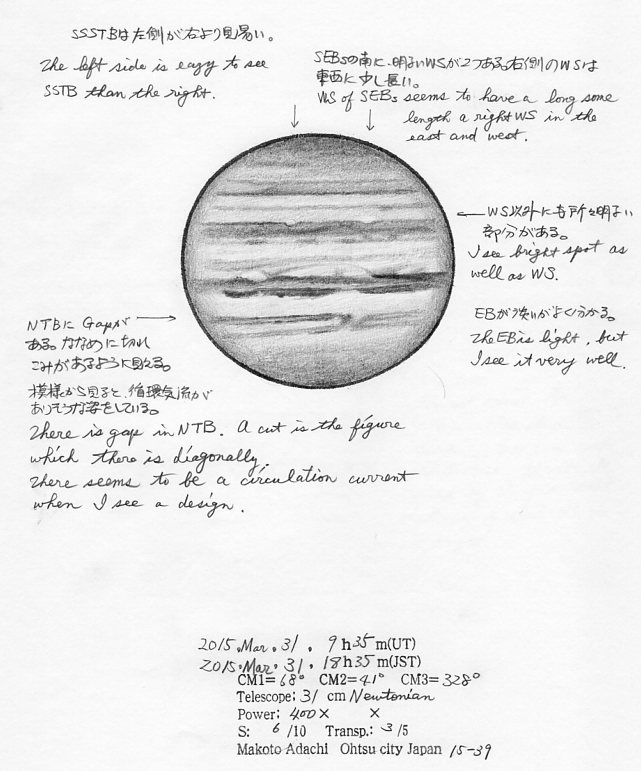 SSSTBは左側が右より見易い。
The left side is eazy to see
SSTB than the right.
SEBsの南に、明るいWSが2つある。右側のWSは
東西に少し長い。
WS of SEBs seems to have a long some
length a right WS in the
east and west.
WS以外にも所々明るい
部分がある。
I see bright spot as
well as WS.
EBが淡いがよく分かる。
The EB is light, but
I see it very well.
NTBにGapが
ある。ななめに切れ
こみがあるように見える。
模様から見ると、循環気流が
ありそうな姿をしている。
There is gap in NTB. A cut is the figure
which there is diagonally.
There seems to be a circulation current
when I see a design.
2015.Mar.31. 9h35m(UT)
2015.Mar.31.18h35m(JST)
CM1=68° CM2=41° CM3=328°
Telescope: 31 cm Newtonian
Power: 400× ×
S: 6/10 Transp.: 3/5
Makoto Adachi Ohtsu city Japan 15-39